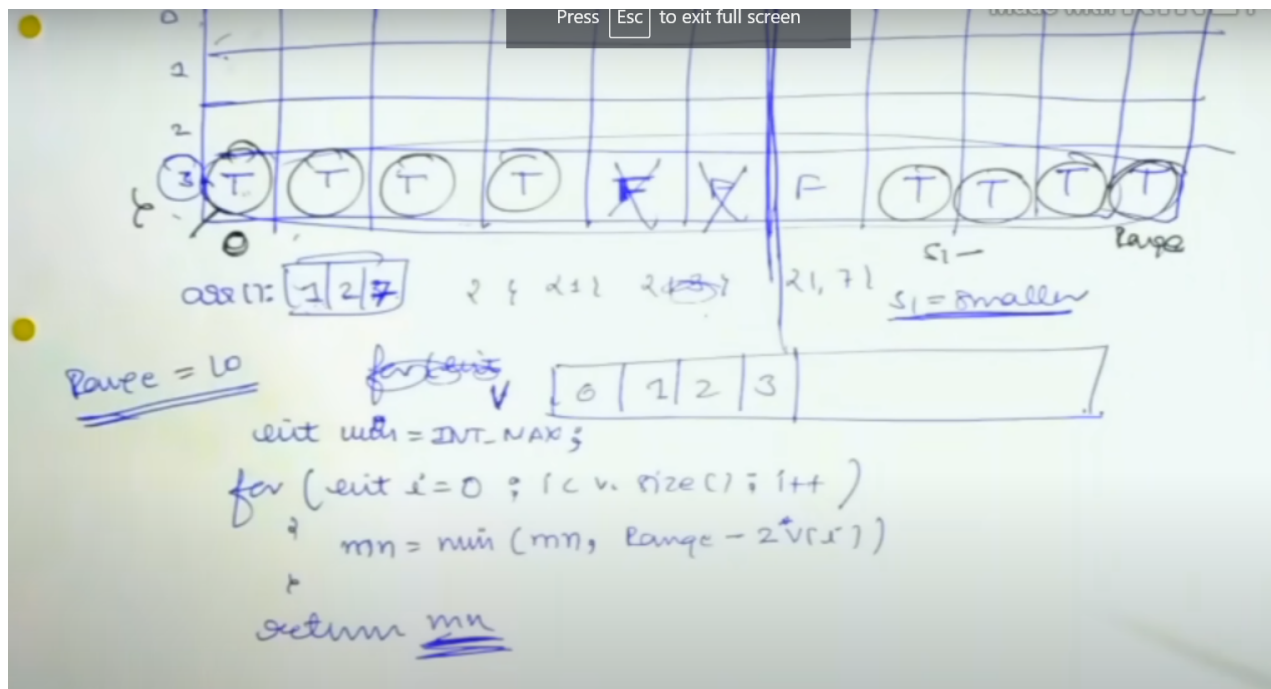 Press Esc to exit full screen
0
1
2
3 T T T T F F F T T T T
0 S1— Range
arr[]: 1 2 7 { } {1} {2} {1, 7} S1 = smaller
Range = 10
V 0 1 2 3
int mn = INT_MAX;
for (int i=0 ; i< v. size() ; i++ )
{
mn = min (mn, Range - 2*V[i])
}
return mn